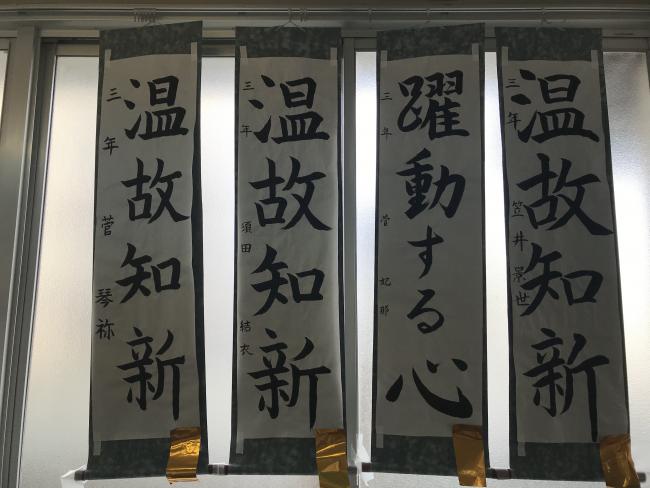 温故知新
三年 菅 琴祢
温故知新
三年 須田 結衣
躍動する心
三年 菅 妃那
温故知新
三年 笠井景世